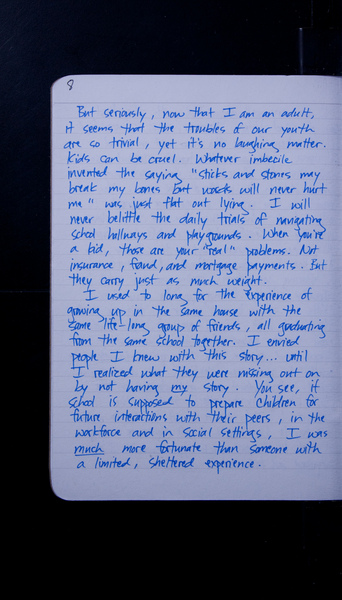 8
But seriously, now that I am an adult,
it seems that the troubles of our youth
are so trivial, yet it's no laughing matter.
Kids can be cruel. Whatever imbecile
invented the saying "sticks and stones may
break my bones but words will never hurt
me" was just flat out lying. I will
never belittle the daily trials of navigating
school hallways and playgrounds. When you're
a kid, those are your "real" problems. Not
insurance, fraud, and mortgage payments. But
they carry just as much weight.
I used to long for the experience of
growing up in the same house with the
same life-long group of friends, all graduating
from the same school together. I envied
people I knew with this story... until
I realized what they were missing out on
by not having my story. You see, if
school is supposed to prepare children for
future interactions with their peers, in the
workforce and in social settings, I was
much more fortunate than someone with
a limited, sheltered experience.